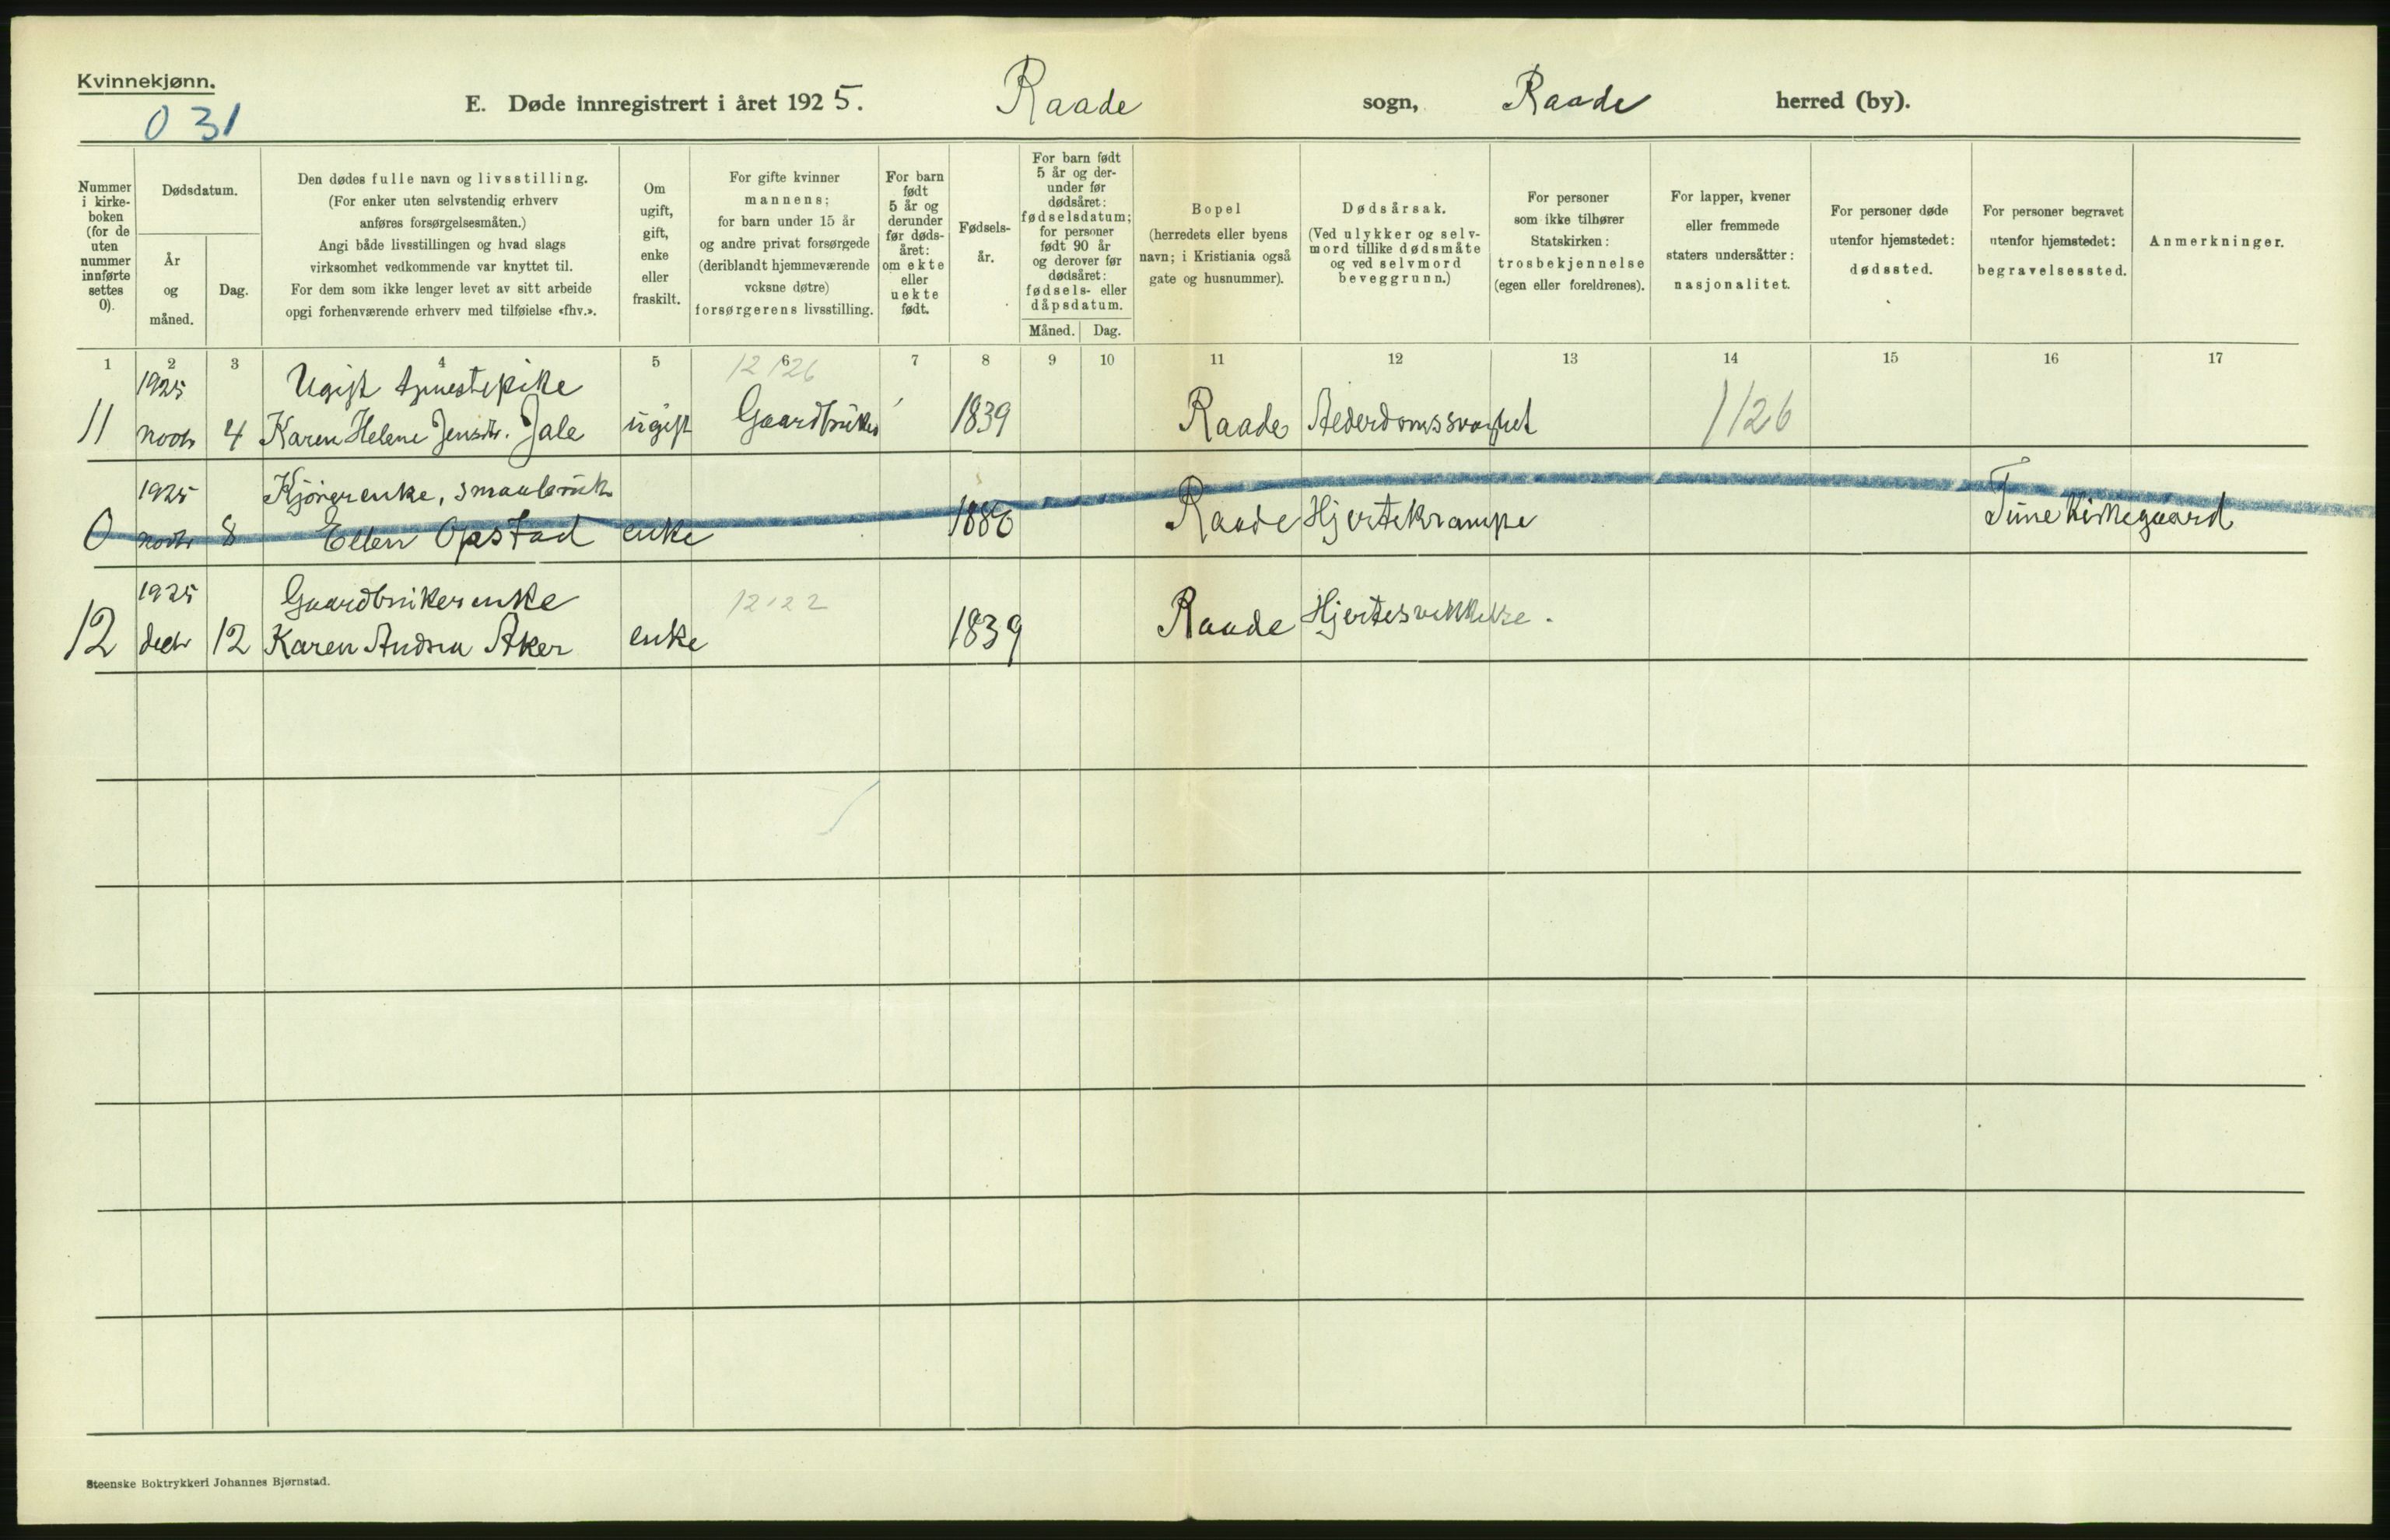 Kvinnekjønn.
031
E. Døde innregistrert i året 1925. Raade sogn, Raade herred (by).
Nummer i kirke-boken (for de uten nummer innførte settes 0).
Dødsdatum.
År og måned.
Dag.
Den dødes fulle navn og livsstilling.
(For enker uten selvstendig erhverv
anføres forsørgelsesmåten.)
Angi både livsstillingen og hvad slags
virksomhet vedkommende var knyttet til.
For dem som ikke lenger levet av sitt arbeide
opgi forhenværende erhverv med tilføielse «fhv.».
Om
ugift,
gift,
enke
eller
fraskilt.
For gifte kvinner
mannens;
for barn under 15 år
og andre privat forsørgede
(deriblandt hjemmeværende
voksne døtre)
forsørgerens livsstilling.
For barn
født
5 år og
derunder
før døds-
året:
om ekte
eller
uekte
født.
Fødsels-
år.
For barn født
5 år og der-
under før
dødsåret:
fødselsdatum;
for personer
født 90 år
og derover før
dødsåret:
fødsels- eller
dåpsdatum.
Måned. Dag.
Bopel
(herredets eller byens
navn; i Kristiania også
gate og husnummer).
Dødsårsak.
(Ved ulykker og selv-
mord tillike dødsmåte
og ved selvmord
beveggrunn.)
For personer
som ikke tilhører
Statskirken:
trosbekjennelse
(egen eller foreldrenes).
For lapper, kvener
eller fremmede
staters undersåtter:
nasjonalitet.
For personer døde
utenfor hjemstedet:
dødssted.
For personer begravet
utenfor hjemstedet:
begravelsessted.
Anmerkninger.
1 2 3 4 5 6 7 8 9 10 11 12 13 14 15 16 17
1925 Ugift tjenestepike 12126
11 novbr 4 Karen Helene Jensdtr. Jale ugift Gaardbruker 1839 Raade 1126
1925 Kjørerenke, smaabruk
0 novbr 8 Ellen Opstad enke 1886 Raade Hjertekrampe Tune Kirkegaard
1925 Gaardbrukerenke 12122
12 decbr 12 Karen Andrea Aker enke 1839 Raade Hjertesvekkelse.
Steenske Boktrykkeri Johannes Bjørnstad.